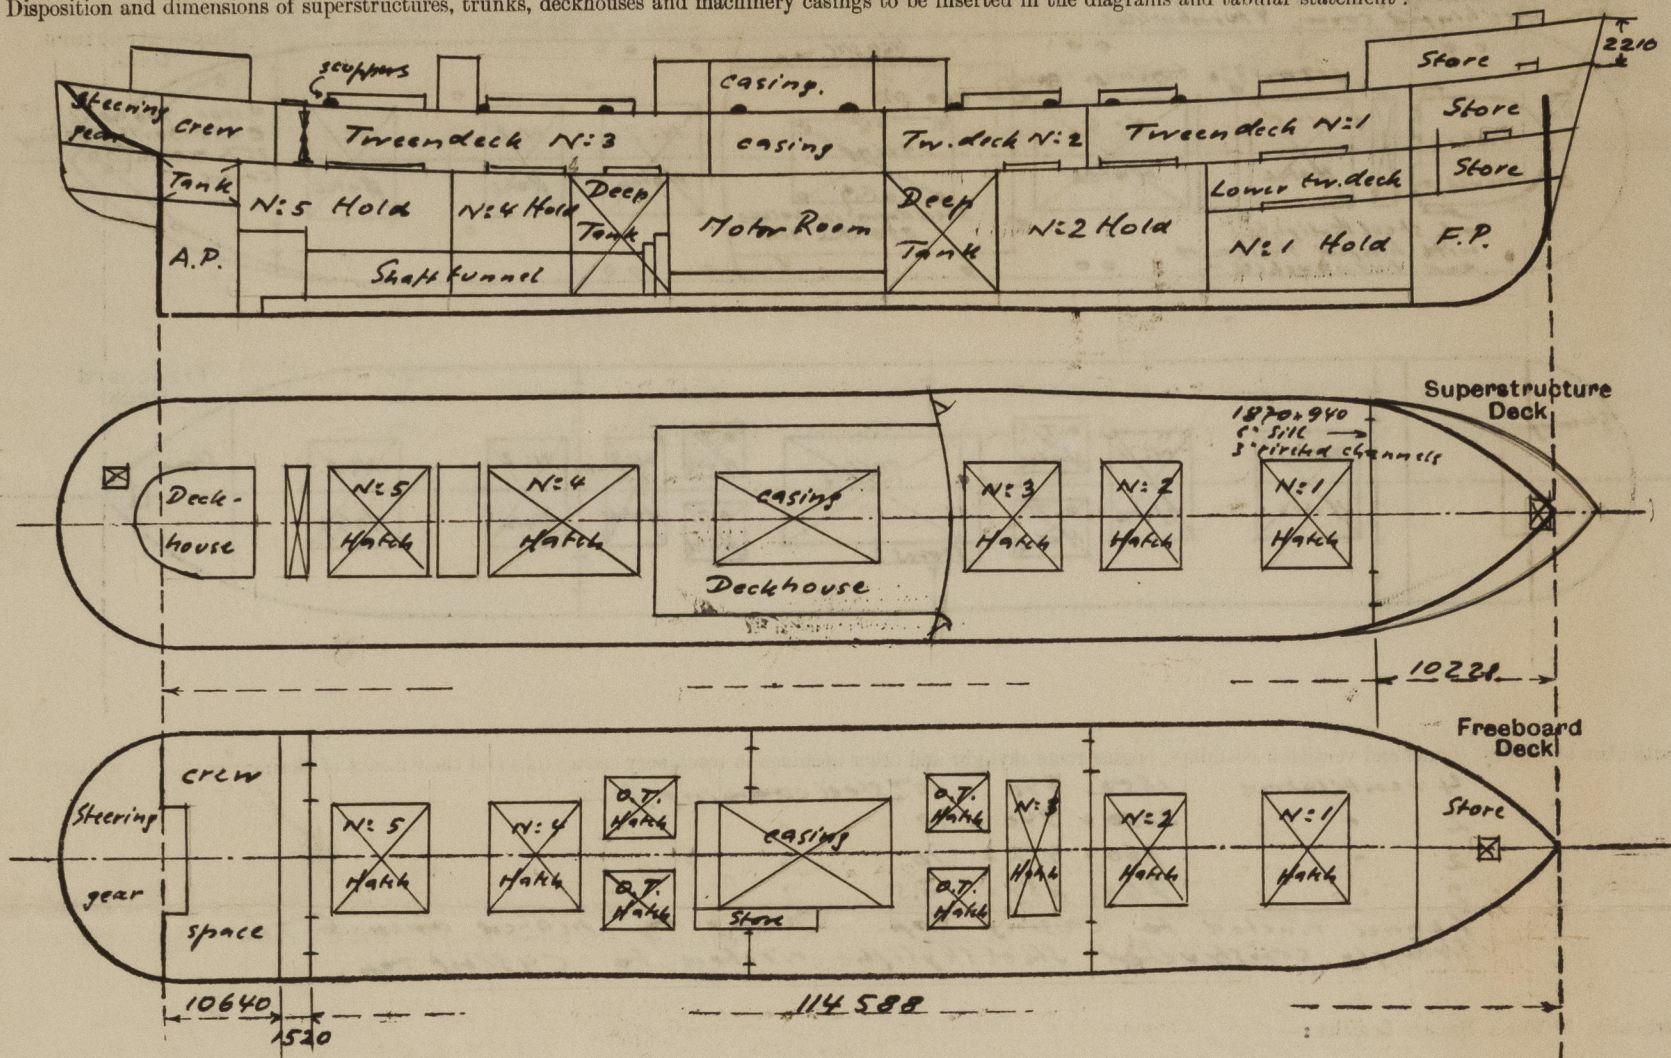 Disposition and dimensions of superstructures, trunks, deckhouses and machinery casings to be inserted in the diagrams and tabular statement :
scuppers
casing.
Store
2210
Steering
gear
crew
Tweendeck No 3
casing
Tw. deck No 2
Tweendeck No 1
Store
Store
Tank
No 5 Hold
No 4 Hold
Deep
Tank
Motor Room
Deep
Tank
No 2 Hold
Lower tw. deck
No 1 Hold
F.P.
A.P.
Shaft tunnel
Superstructure
Deck
1870 x 940
6" sill
3" riveted channels
Deck-
house
No 5
Hatch
No 4
Hatch
casing
Deckhouse
No 3
Hatch
No 2
Hatch
No 1
Hatch
10228
Freeboard
Deck
crew
space
Steering
gear
No 5
Hatch
No 4
Hatch
O.T.
Hatch
O.T.
Hatch
casing
Store
O.T.
Hatch
O.T.
Hatch
No 3
Hatch
No 2
Hatch
No 1
Hatch
Store
10640
1520
114 588